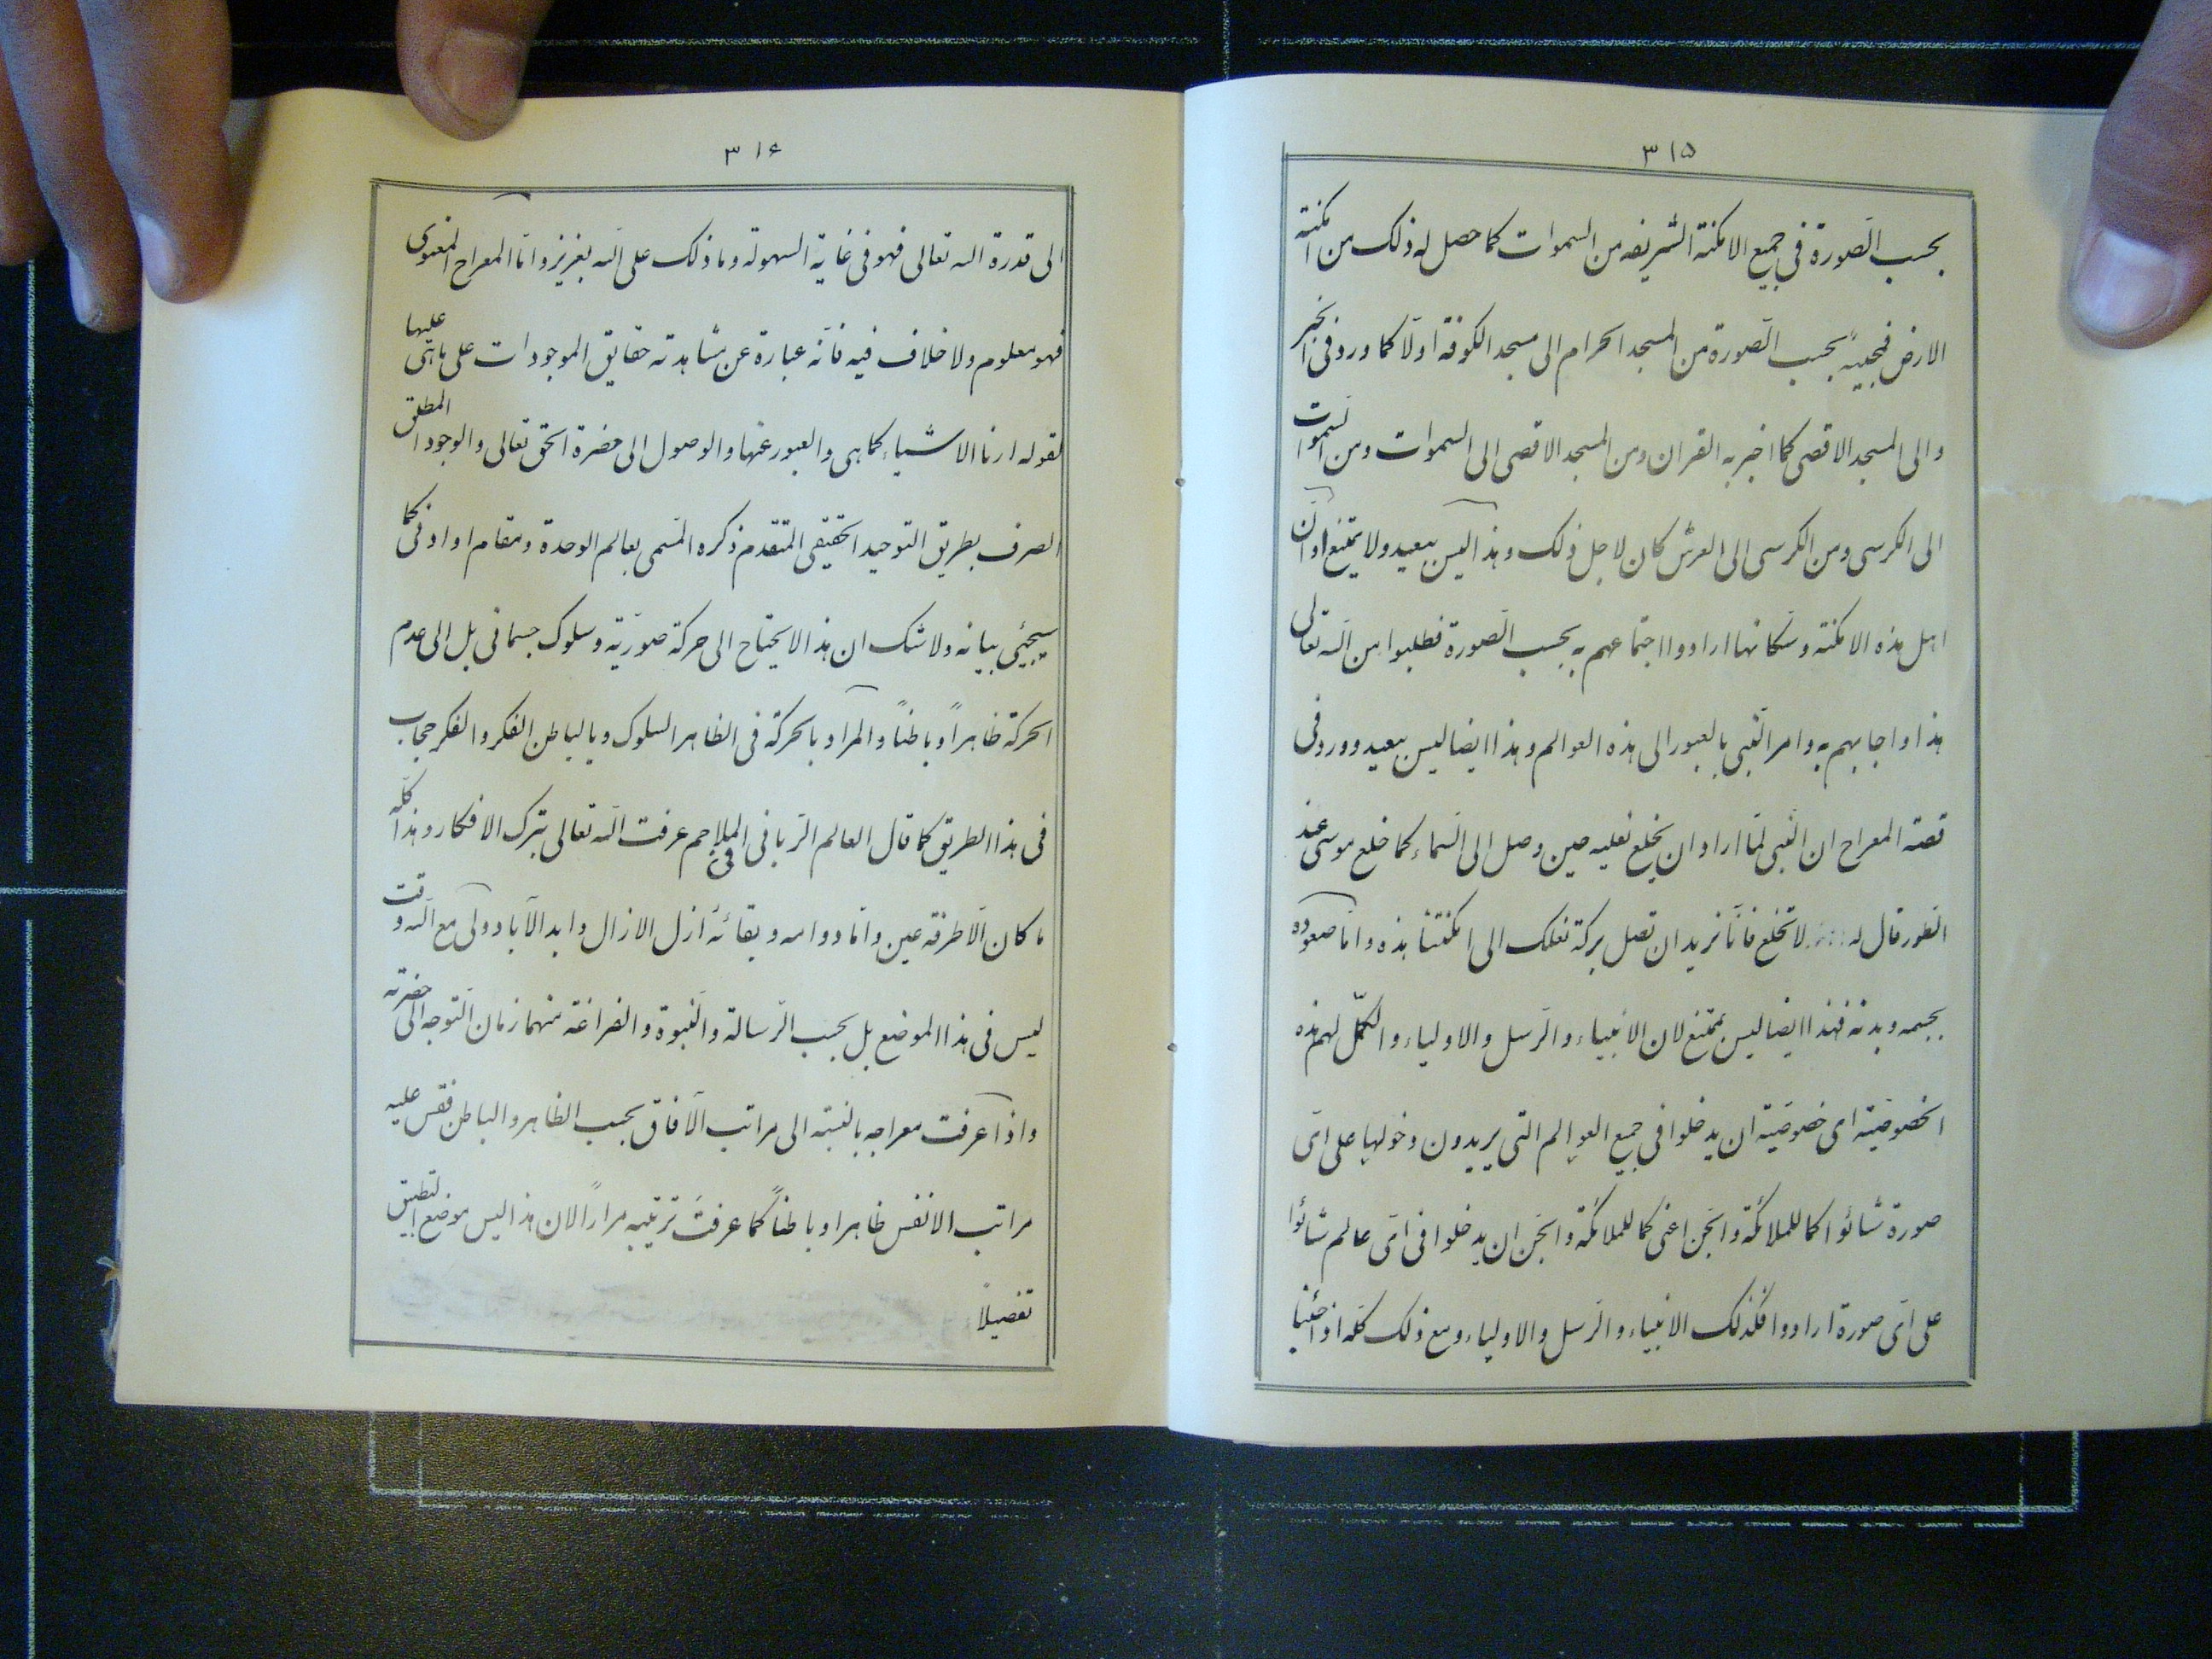 ٣١٥
بحسب الصّورة فى جميع الامكنة الشريفه من السموات كما حصل له ذلك من امكنة
الارض فمجيئه بحسب الصّورة من المسجد الحرام الى مسجد الكوفة اولا كما ورد فى الخبر
والى المسجد الاقصى كما اخبر به القران ومن المسجد الاقصى الى السموات ومن السّموات
الى الكرسى ومن الكرسى الى العرش كان لاجل ذلك وهذا ليس ببعيد ولا يمتنع او انّ
اهل هذه الامكنة وسكانها ارادوا اجتماعهم به بحسب الصّورة فطلبوا من اللّه تعالى
هذا واجابهم به وامر النّبى بالعبور الى هذه العوالم وهذا ايضا ليس ببعيد وورد فى
قصّة المعراج ان النّبى لمّا اراد ان يخلع نعليه حين وصل الى السّماء كما خلع موسى عند
الطّور قال له لا تخلع فانّا نريد ان تصل بركة نعلك الى امكنتنا هذه وامّا صعوده
بجسمه وبدنه فهذا ايضا ليس بممتنع لان الانبياء والرّسل والاولياء والكمّل لهم هذه
الخصوصيّة اى خصوصيّة ان يدخلوا فى جميع العوالم التى يريدون دخولها على اىّ
صورة شائوا كما للملائكة والجّن اعنى كما للملائكة والجّن ان يدخلوا فى اىّ عالم شائوا
على اىّ صورة ارادوا فكذلك الانبياء والرّسل والاولياء ومع ذلك كلّه اذا جئنا
٣١۶
الى قدرة اللّه تعالى فهو فى غاية السهولة وما ذلك على اللّه بعزيز وامّا المعراج المعنوى
فهو معلوم ولا خلاف فيه فانّه عبارة عن مشاهدته حقايق الموجودات على ما هى عليها
لقوله ارنا الاشياء كما هى والعبور عنها والوصول الى حضرة الحق تعالى والوجود المطلق
الصرف بطريق التوحيد الحقيقى المتقدم ذكره المسّمى بعالم الوحدة ومقام او ادنى كما
سيجيئى بيانه ولا شك ان هذا لا يحتاج الى حركة صوريّة وسلوك جسمانى بل الى عدم
الحركة ظاهراً وباطناً والمراد بالحركة فى الظاهر السلوك وبالباطن الفكر والفكر حجاب
فى هذا الطريق كما قال العالم الرّبانى الملاجمى عرفت اللّه تعالى بترك الافكار وهذا كلّه
ما كان الّا طرفة عين وامّا دوامه وبقائه أزل الازال وابد الآباد ولى مع اللّه وقت
ليس فى هذا الموضع بل بحسب الرّسالة والنّبوة والفراغة منهما زمان التّوجه الى حضرته
واذا عرفت معراجه بالنسبة الى مراتب الآفاق بحسب الظاهر والباطن فقس عليه
مراتب الانفس ظاهرا وباطناً كما عرفتَ ترتيبه مراراً لان هذا ليس موضع التطبيق
تفصيلاً